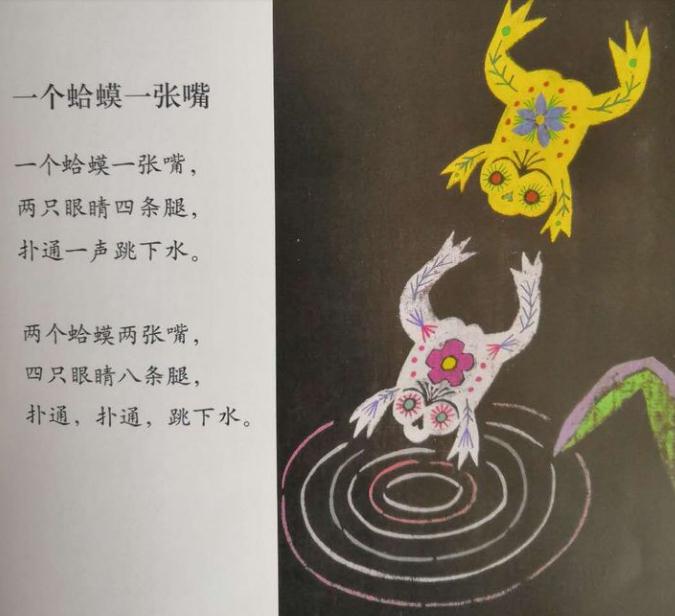 一个蛤蟆一张嘴
一个蛤蟆一张嘴，
两只眼睛四条腿，
扑通一声跳下水。
两个蛤蟆两张嘴，
四只眼睛八条腿，
扑通，扑通，跳下水。